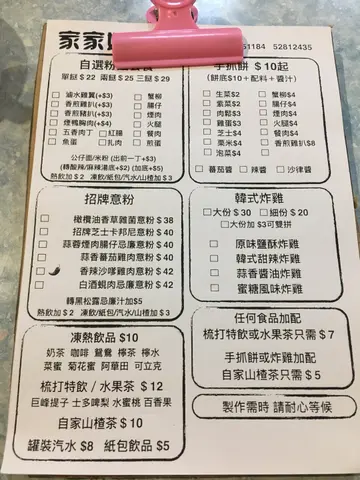 家家
51184 52812435
自選粉
單餸 $22 兩餸 $25 三餸 $29
滷水雞翼(+$3)
蟹柳
香煎雞扒(+$3)
腸仔
香煎豬扒(+$3)
煙肉
煙鴨胸(+$4)
火腿
五香肉丁
紅腸
餐肉
魚蛋
扎肉
煎蛋
公仔面/米粉 (出前一丁+$3)
(轉酸辣/麻辣湯底+$2) (加底+$5)
熱飲加 $2 凍飲/紙包/汽水/山楂加 $3
手抓餅 $10起
(餅底$10+配料+醬汁)
生菜$2
蟹柳$4
紫菜$2
腸仔$4
肉鬆$3
煙肉$4
雞蛋$3
火腿$4
芝士$4
餐肉$4
粟米$4
香煎雞扒$8
泡菜$4
蕃茄醬
辣醬
沙律醬
招牌意粉
橄欖油香草雜菌意粉 $38
招牌芝士卡邦尼意粉 $40
蒜蓉煙肉腸仔忌廉意粉 $40
蒜香蕃茄雞肉意粉 $40
香辣沙嗲雞肉意粉 $42
白酒蜆肉忌廉意粉 $42
轉黑松露忌廉汁加$5
熱飲加 $2 凍飲/紙包/汽水/山楂加 $3
韓式炸雞
大份 $30
細份 $20
大份加 $3可雙拼
原味鹽酥炸雞
韓式甜辣炸雞
蒜香醬油炸雞
蜜糖風味炸雞
凍熱飲品 $10
奶茶 咖啡 鴛鴦 檸茶 檸水
菜蜜 菊花蜜 阿華田 可立克
梳打特飲 / 水果茶 $12
巨峰提子 士多啤梨 水蜜桃 百香果
自家山楂茶 $10
罐裝汽水 $8 紙包飲品 $5
任何食品加配
梳打特飲或水果茶只需 $7
手抓餅或炸雞加配
自家山楂茶只需 $5
製作需時 請耐心等候